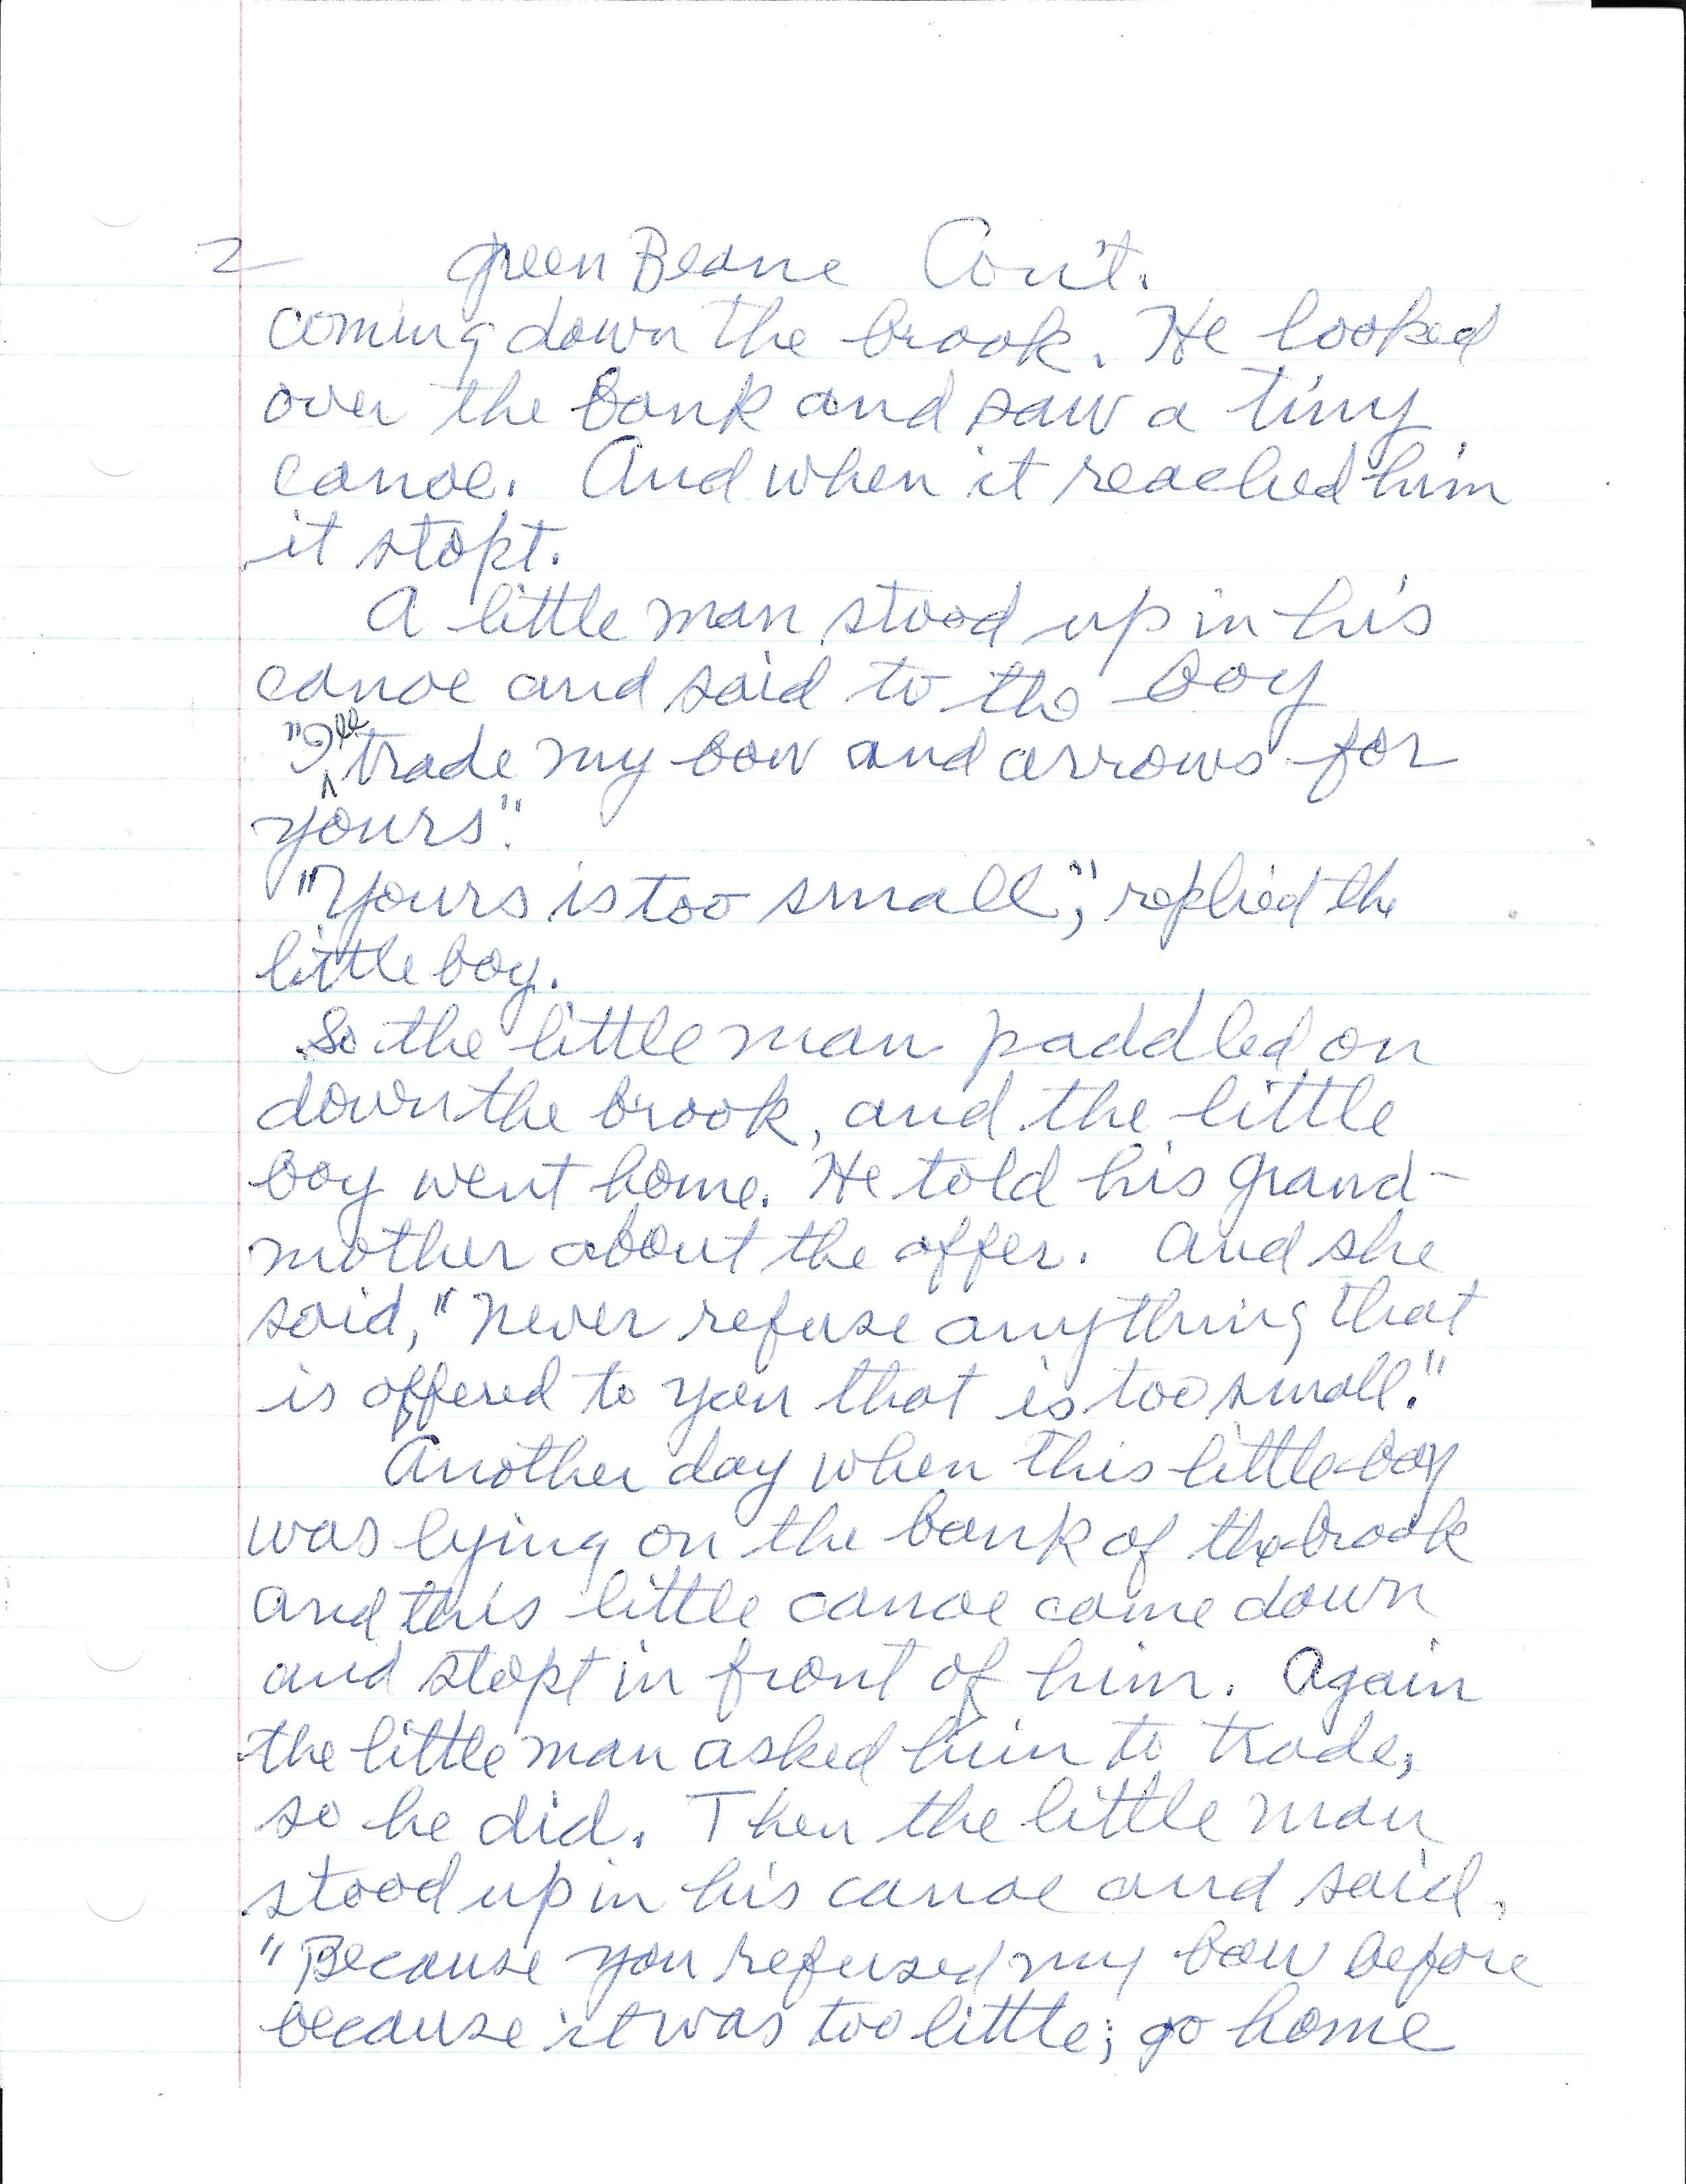 2 Green Beane Con't.
coming down the brook. He looked
over the bank and saw a tiny
canoe. And when it reached him
it stopt.
A little man stood up in his
canoe and said to the boy
"I'll trade my bow and arrows for
yours."
"Yours is too small", replied the
little boy.
So the little man paddled on
down the brook, and the little
boy went home. He told his grand-
mother about the offer. And she
said, "Never refuse anything that
is offered to you that is too small."
Another day when this little boy
was lying on the bank of the brook
and this little canoe come down
and stopt in front of him. Again
the little man asked him to trade,
so he did. Then the little man
stood up in his canoe and said,
"Because you refused my bow before
because it was too little; go home